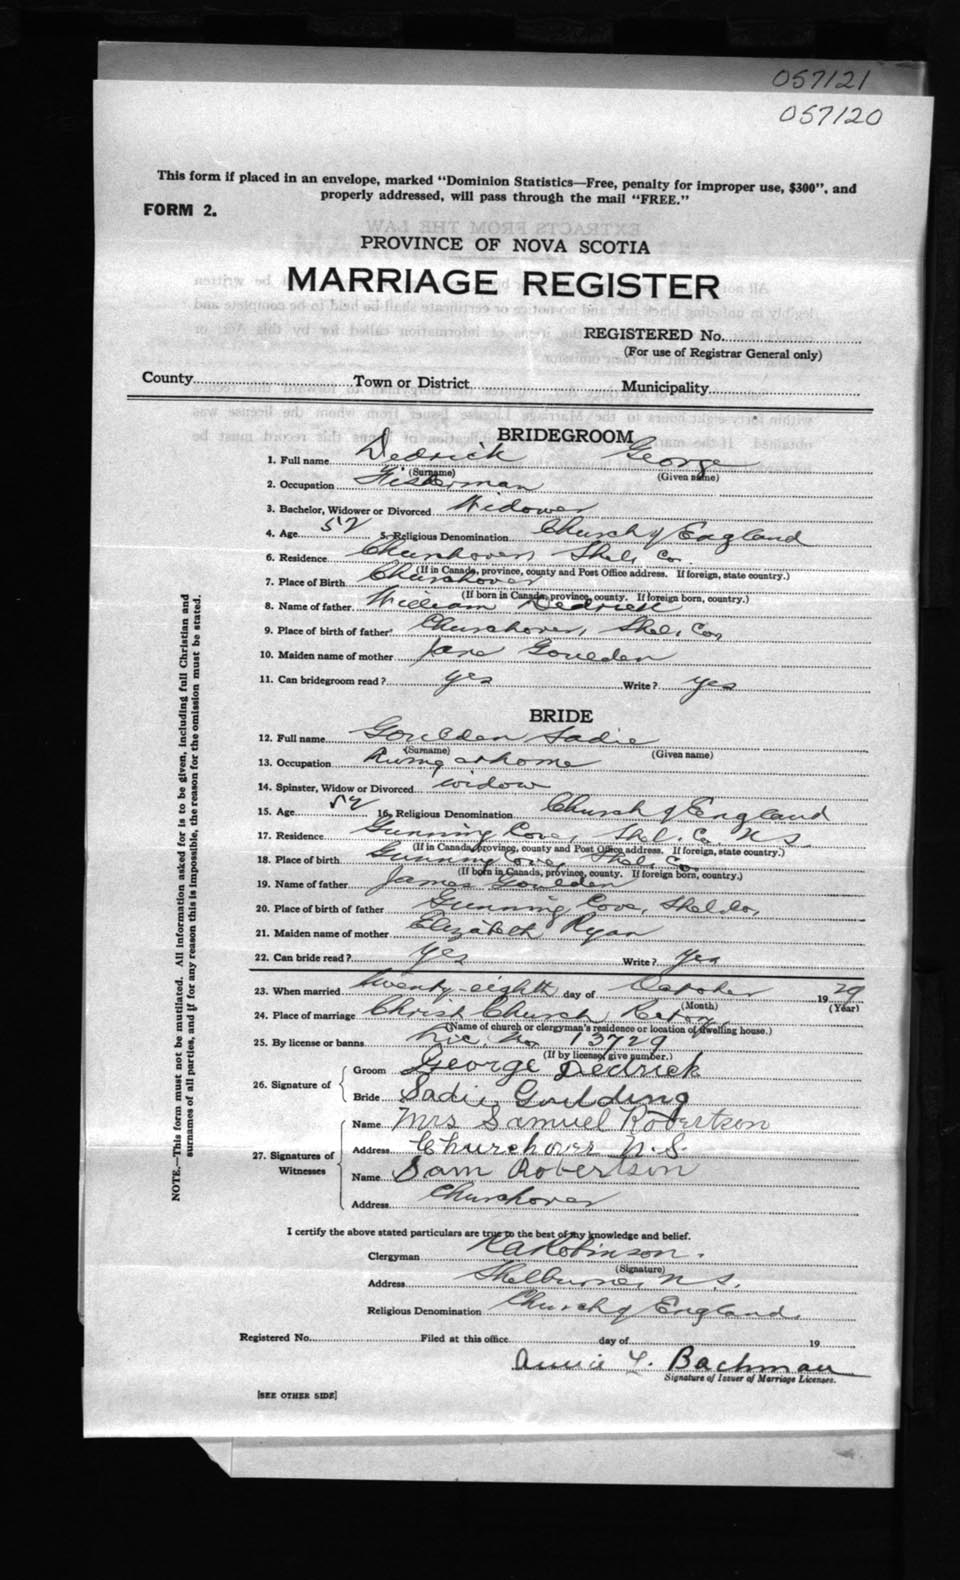 057121
057120
This form if placed in an envelope, marked "Dominion Statistics—Free, penalty for improper use, $300", and
properly addressed, will pass through the mail "FREE."
FORM 2.
PROVINCE OF NOVA SCOTIA
MARRIAGE REGISTER
REGISTERED No.
(For use of Registrar General only)
County Town or District Municipality
BRIDEGROOM
1. Full name Dedrick George
(Surname) (Given name)
2. Occupation Fisherman
3. Bachelor, Widower or Divorced Widower
4. Age 52 5. Religious Denomination Church of England
6. Residence Churchover, Shel. Co.
(If in Canada, province, county and Post Office address. If foreign, state country.)
7. Place of Birth Churchover
(If born in Canada, province, county. If foreign born, country.)
8. Name of father William Dedrick
9. Place of birth of father Churchover, Shel. Co.
10. Maiden name of mother Jane Goulden
11. Can bridegroom read? yes Write? yes
BRIDE
12. Full name Goulden Sadie
(Surname) (Given name)
13. Occupation at home
14. Spinster, Widow or Divorced widow
15. Age 52 16. Religious Denomination Church of England
17. Residence Gunning Cove, Shel. Co. N S
(If in Canada, province, county and Post Office address. If foreign, state country.)
18. Place of birth Gunning Cove, Shel. Co.
(If born in Canada, province, county. If foreign born, country.)
19. Name of father James Goulden
20. Place of birth of father Gunning Cove, Shel Co,
21. Maiden name of mother Elizabeth Ryan
22. Can bride read? yes Write? yes
23. When married twenty-eighth day of October 1929
(Month) (Year)
24. Place of marriage Christ Church
(Name of church or clergyman's residence or location of dwelling house.)
25. By license or banns Lic. No 13729
(If by license, give number.)
26. Signature of
Groom George Dedrick
Bride Sadie Goulding
27. Signatures of Witnesses
Name Mrs Samuel Robertson
Address Churchover N.S.
Name Sam Robertson
Address Churchover
I certify the above stated particulars are true to the best of my knowledge and belief.
Clergyman Robinson.
(Signature)
Address Shelburne, N.S.
Religious Denomination Church of England.
Registered No. Filed at this office day of 19
Annie L. Bachman
Signature of Issuer of Marriage Licenses.
[SEE OTHER SIDE]
NOTE.—This form must not be mutilated. All information asked for is to be given, including full Christian and
surnames of all parties, and if for any reason this is impossible, the reason for the omission must be stated.